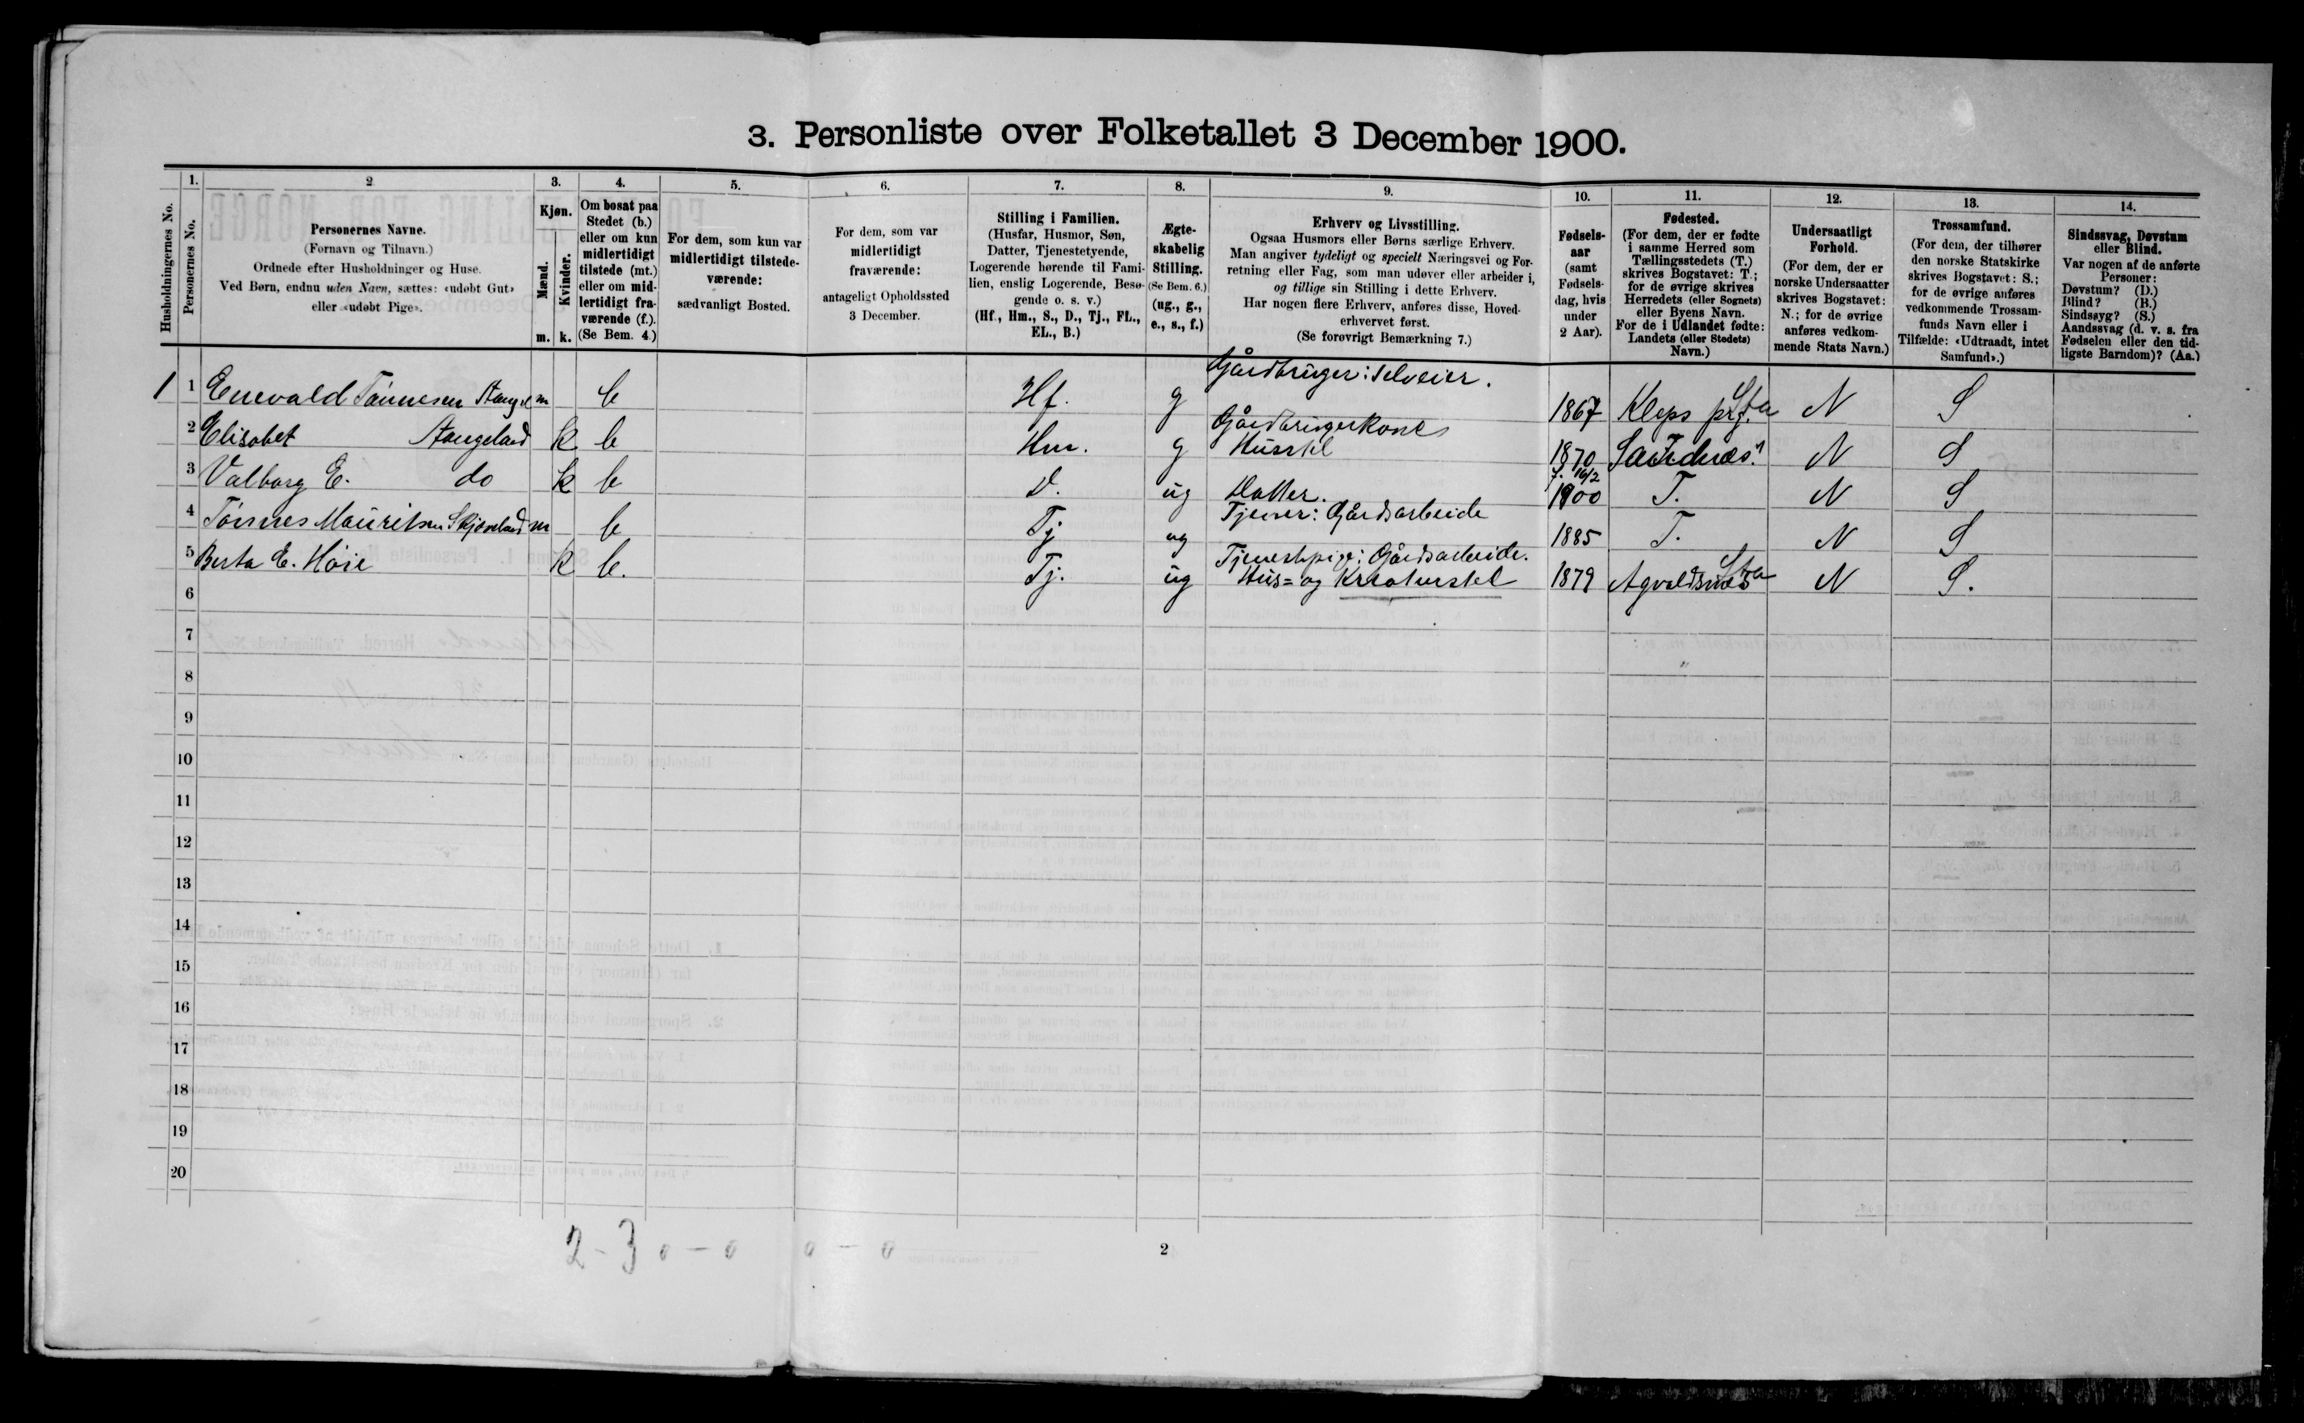 3. Personliste over Folketallet 3 December 1900.
1. 2 3. 4. 5. 6. 7. 8. 9. 10. 11. 12. 13. 14.
Husholdningernes No.
Personernes No.
Personernes Navne.
(Fornavn og Tilnavn.)
Ordnede efter Husholdninger og Huse.
Ved Børn, endnu uden Navn, sættes: «udøbt Gut»
eller «udøbt Pige».
Kjøn.
Mænd.
Kvinder.
m. k.
Om bosat paa
Stedet (b.)
eller om kun
midlertidigt
tilstede (mt.)
eller om mid-
lertidigt fra-
værende (f.).
(Se Bem. 4.)
For dem, som kun var
midlertidigt tilstede-
værende:
sædvanligt Bosted.
For dem, som var
midlertidigt
fraværende:
antageligt Opholdssted
3 December.
Stilling i Familien.
(Husfar, Husmor, Søn,
Datter, Tjenestetyende,
Logerende hørende til Fami-
lien, enslig Logerende, Besø-
gende o. s. v.)
(Hf., Hm., S., D., Tj., FL.,
EL., B.)
Ægte-
skabelig
Stilling.
(Se Bem. 6.)
(ug., g.,
e., s., f.)
Erhverv og Livsstilling.
Ogsaa Husmors eller Børns særlige Erhverv.
Man angiver tydeligt og specielt Næringsvei og For-
retning eller Fag, som man udøver eller arbeider i,
og tillige sin Stilling i dette Erhverv.
Har nogen flere Erhverv, anføres disse, Hoved-
erhvervet først.
(Se forøvrigt Bemærkning 7.)
Fødsels-
aar
(samt
Fødsels-
dag, hvis
under
2 Aar).
Fødested.
(For dem, der er fødte
i samme Herred som
Tællingsstedets (T.)
skrives Bogstavet: T.;
for de øvrige skrives
Herredets (eller Sognets)
eller Byens Navn.
For de i Udlandet fødte:
Landets (eller Stedets)
Navn.)
Undersaatligt
Forhold.
(For dem, der er
norske Undersaatter
skrives Bogstavet:
N.; for de øvrige
anføres vedkom-
mende Stats Navn.)
Trossamfund.
(For dem, der tilhører
den norske Statskirke
skrives Bogstavet: S.;
for de øvrige anføres
vedkommende Trossam-
funds Navn eller i
Tilfælde: «Udtraadt, intet
Samfund».)
Sindssvag, Døvstum
eller Blind.
Var nogen af de anførte
Personer:
Døvstum? (D.)
Blind? (B.)
Sindssyg? (S.)
Aandssvag (d. v. s. fra
Fødselen eller den tid-
ligste Barndom)? (Aa.)
Gårdbruger: selveier.
1 1 Enevald Tønnesen m b Hf. g 1867 Klepp prg. Sta N S
Gårdbrugerkone
2 Elisabet Aangeland k b Hm. g Husstel 1870 Sandnæs N S
3 Valborg E. do k b D. ug Datter. f. 16/2 1900 T. N S
4 Tønnes Mauritsen Skjæveland m b Tj ug Tjener: Gårdsarbeide 1885 T. N S
Tjenestpige: Gårdsarbeide.
5 Berta E. Høie k b. Tj. ug Hus= og Kreaturstel 1879 Agvaldsnæs Sta N S.
6
7
8
9
10
11
12
13
14
15
16
17
18
19
20
2-3 0-0 0-0
2